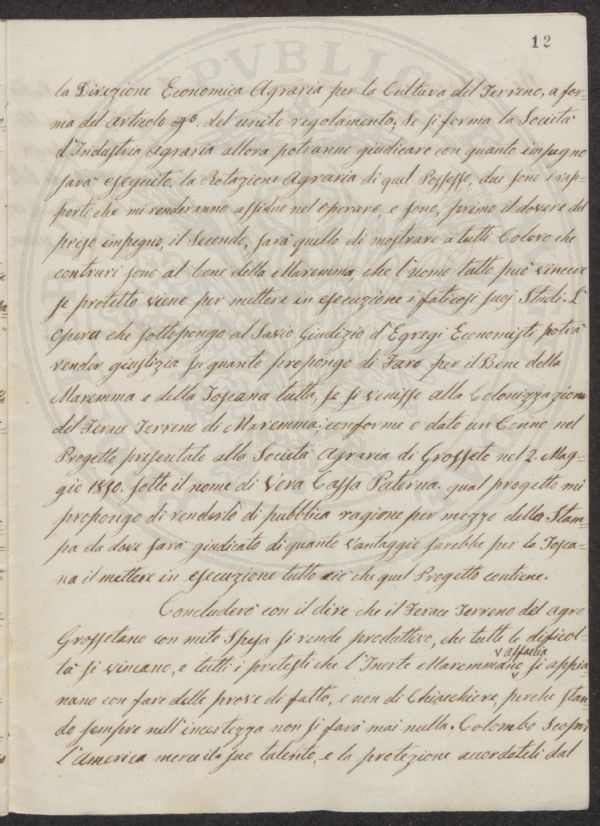 12
la Direzione Economica Agraria per la Cultura del Terreno, a for-
ma del articolo 9°. del unito regolamento, Se si forma la Società
d'Industria Agraria allora potranno giudicare con quanto impegno
sarà eseguito la Rotazione Agraria di quel Possesso, due sono i rap-
porti che mi renderanno assiduo nel operare, e sono, primo il dovere del
preso impegno, il Secondo, sarà quello di mostrare a tutti Coloro che
contrari sono al bene della Maremma, che l'uomo tutto può vincere
se protetto viene per mettere in esecuzione i faticosi suoj Studi. L'
opera che sottopongo al Savio Giudizio d'Egregi Economisti potrà
render giustizia su quanto propongo di Fare per il Bene della
Maremma e della Toscana tutta, se si venisse alla Colonizzazione
del Ferace Terreno di Maremma, conforme o dato un Cenno nel
Progetto presentato alla Società Agraria di Grosseto nel 2. Mag-
gio 1850. sotto il nome di Vera Cassa Paterna. qual progetto mi
propongo di renderlo di pubblica ragione per mezzo della Stam-
pa da dove sarà giudicato di quanto Vantaggio sarebbe per la Tosca-
na il mettere in esecuzione tutto ciò che quel Progetto contiene.
Concluderò con il dire che il Ferace Terreno del agro
Grossetano con mite Spesa si rende produttivo, che tutte le dificol-
tà si vincano, e tutti i pretesti che l'Inerte Maremmano affaccia si appia-
nano con fare delle prove di fatto, e non di Chiacchiere, perche stan-
do sempre nell'incertezza non si farà mai nulla. Colombo Scoprì
l'America merce il suo talento, e la protezione accordateli dal